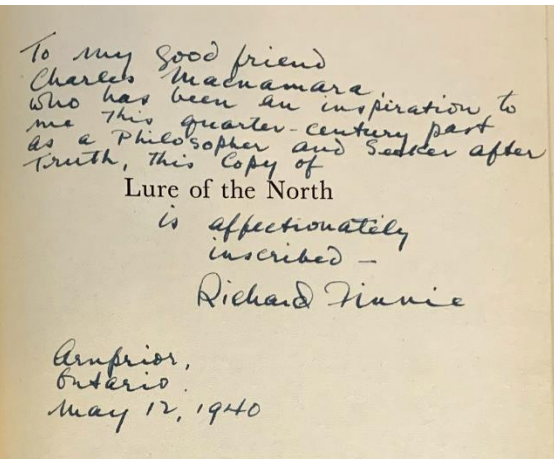 To my good friend
Charles Macnamara,
who has been an inspiration to
me this quarter-century past
as a Philosopher and Seeker after
Truth, this Copy of
Lure of the North
is affectionately
inscribed —
Richard Finnie
Arnprior,
Ontario.
May 12, 1940